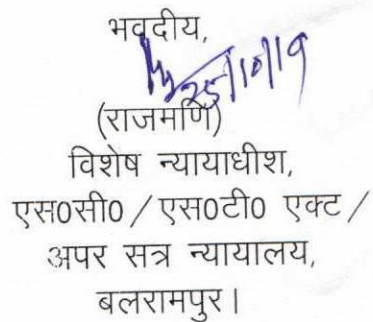 भवदीय,
25/10/19
(राजमणि)
विशेष न्यायाधीश,
एस0सी0 / एस0टी0 एक्ट /
अपर सत्र न्यायालय,
बलरामपुर।